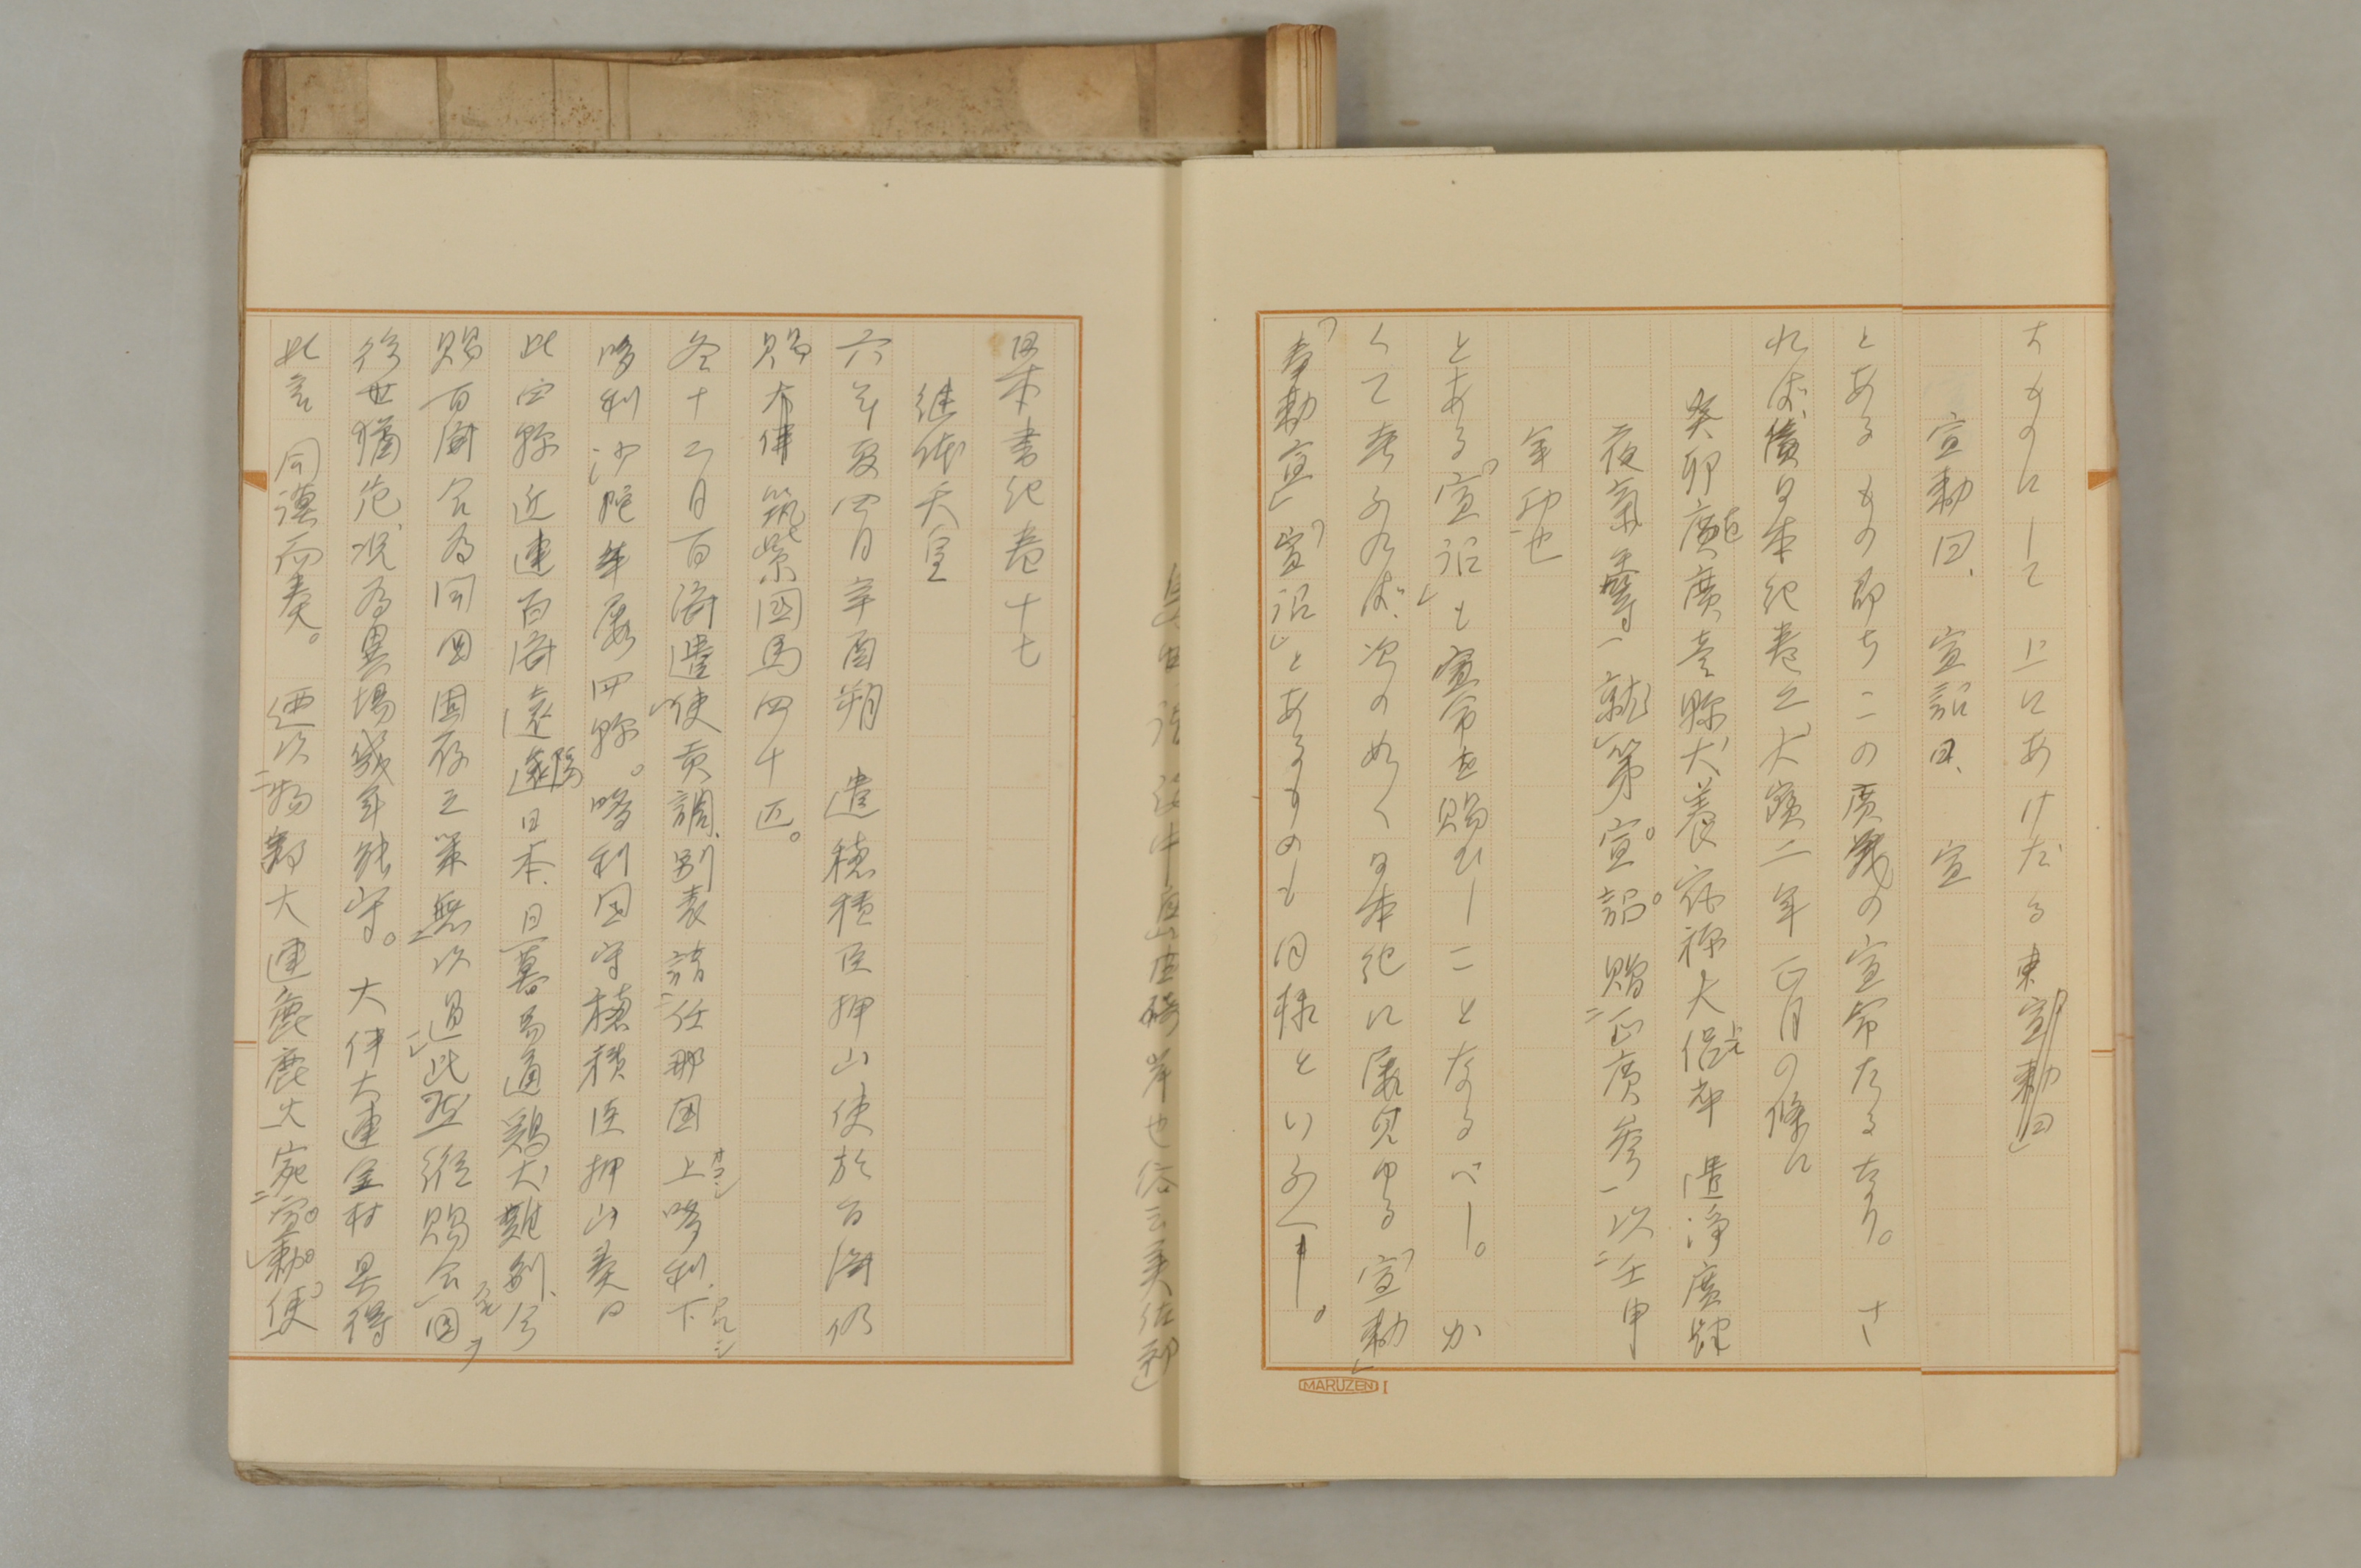 すものにして上にあけたる「宣勅曰」
宣勅曰、宣詔曰、宣
とあるもの即ちこの広義の宣命たるなり。さ
れば續日本紀巻之二大寶二年正月の條に
癸卯 廣臺縣犬養宿祢大侶 遣淨廣肆
夜氣等一就第宣。詔。贈正廣參一以壬申
年功也
とある「宣詔」も宣命を賜ひしことなるべし。か
くて考ふれば、次の如く日本紀に屡見ゆる「宣勅」
「奉勅宣」「宣詔」とあるものも同様といふべし。
MARUZEN
日本書紀巻十七
継体天皇
六年夏四月辛酉朔 遣穂積臣押山使於百済仍
賜 筑紫國馬四十匹。
冬十二月百済遣使貢調、別表請任那国上哆利、下
哆利沙陀牟婁四縣。哆利国守穂積臣押山奏曰
此四縣近連百済遠隔日本、旦暮易通鶏犬難別、今
賜百済合為同国固存之策無以過此然縦賜合国
後世猶危况為異場幾年能守。大伴大連金村具得
是言同謨而奏。廼以物部大連麁鹿火宛宣。勅。使